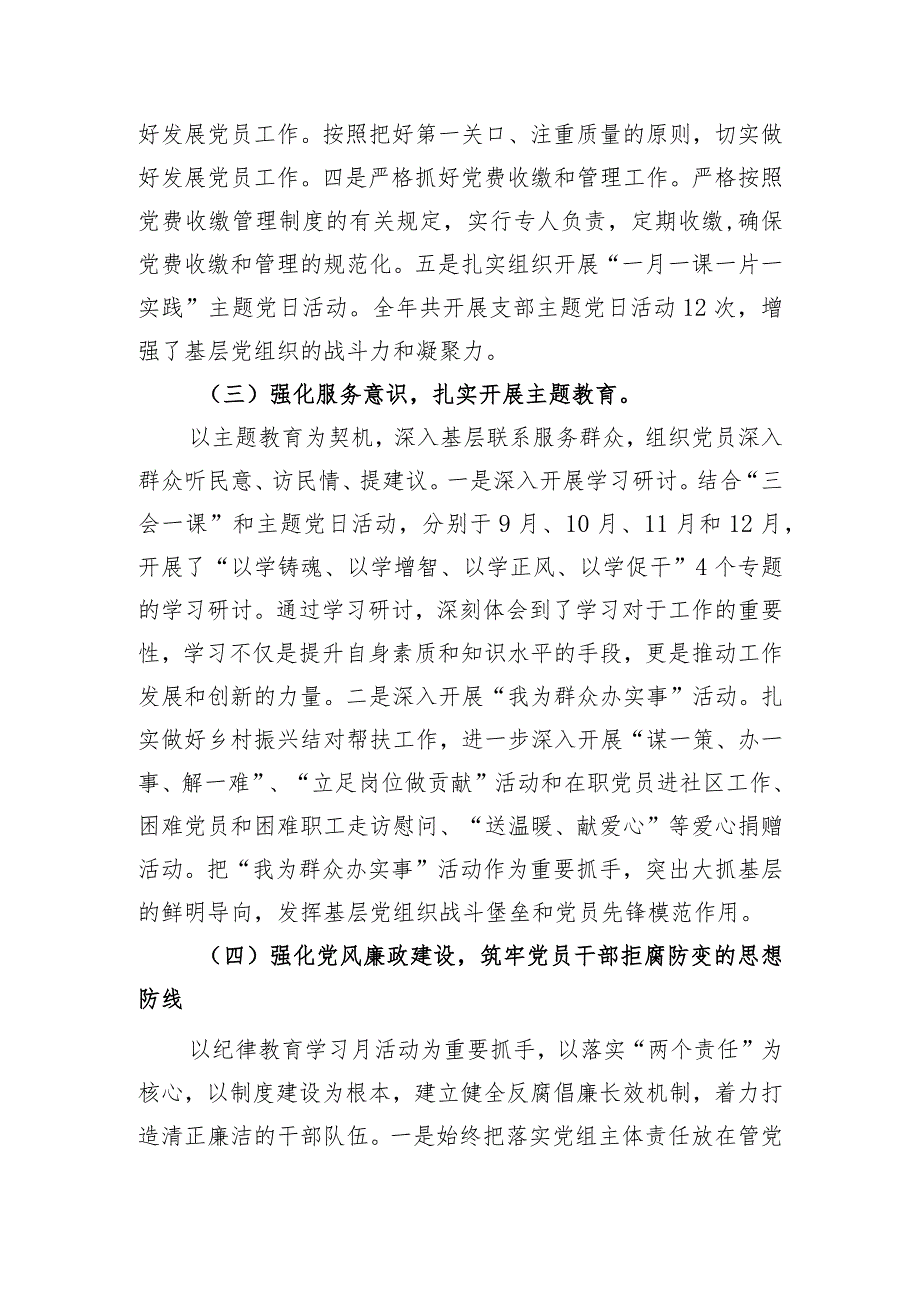 好发展党员工作。按照把好第一关口、注重质量的原则，切实做
好发展党员工作。四是严格抓好党费收缴和管理工作。严格按照
党费收缴管理制度的有关规定，实行专人负责，定期收缴,确保
党费收缴和管理的规范化。五是扎实组织开展“一月一课一片一
实践”主题党日活动。全年共开展支部主题党日活动12次，增
强了基层党组织的战斗力和凝聚力。
（三）强化服务意识，扎实开展主题教育。
以主题教育为契机，深入基层联系服务群众，组织党员深入
群众听民意、访民情、提建议。一是深入开展学习研讨。结合“三
会一课”和主题党日活动，分别于9月、10月、11月和12月，
开展了“以学铸魂、以学增智、以学正风、以学促干”4个专题
的学习研讨。通过学习研讨，深刻体会到了学习对于工作的重要
性，学习不仅是提升自身素质和知识水平的手段，更是推动工作
发展和创新的力量。二是深入开展“我为群众办实事”活动。扎
实做好乡村振兴结对帮扶工作，进一步深入开展“谋一策、办一
事、解一难”、“立足岗位做贡献”活动和在职党员进社区工作、
困难党员和困难职工走访慰问、“送温暖、献爱心”等爱心捐赠
活动。把“我为群众办实事”活动作为重要抓手，突出大抓基层
的鲜明导向，发挥基层党组织战斗堡垒和党员先锋模范作用。
（四）强化党风廉政建设，筑牢党员干部拒腐防变的思想
防线
以纪律教育学习月活动为重要抓手，以落实“两个责任”为
核心，以制度建设为根本，建立健全反腐倡廉长效机制，着力打
造清正廉洁的干部队伍。一是始终把落实党组主体责任放在管党